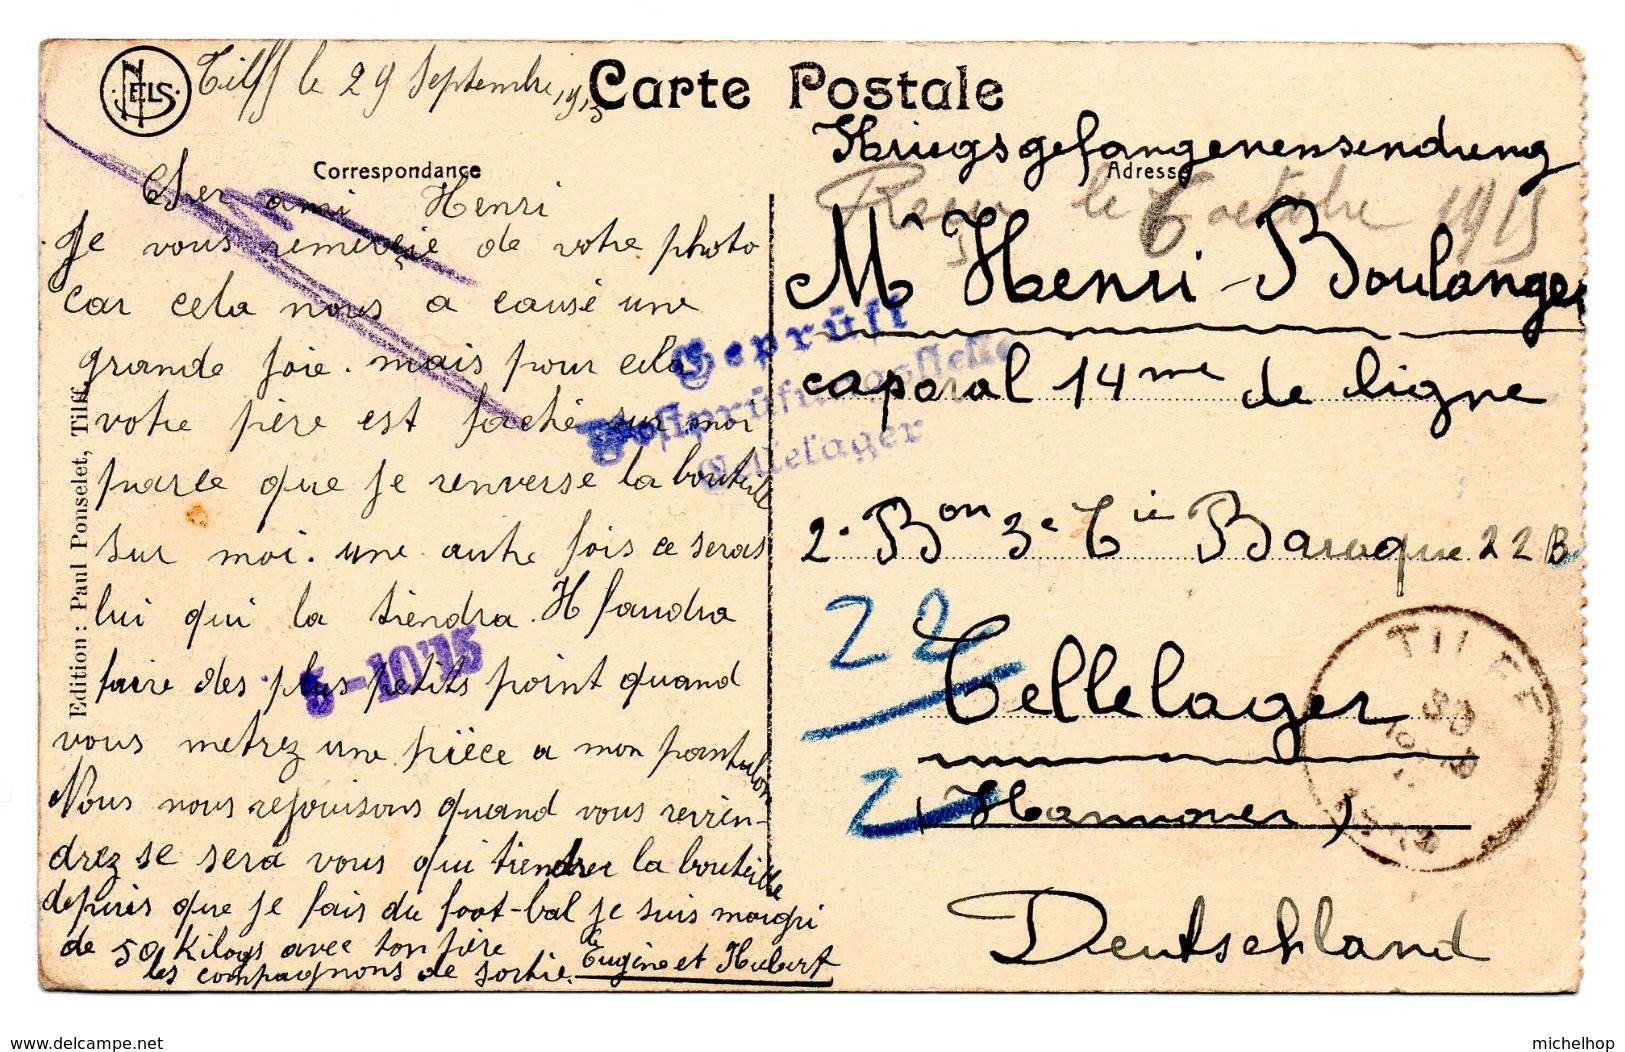 NELS
Tilff le 29 Septembre 1915
Carte Postale
Correspondance
Adresse
Cher ami Henri
Je vous remerçie de votre photo
car cela nous a causé une
grande joie. mais pour cela
votre père est faché sur moi
parce que je renverse la bouteille
sur moi. une autre fois ce seras
lui qui la tiendra. Il faudra
faire des plus petits point quand
vous metrez une pièce a mon pantalon
Nous nous rejouisons quand vous revien-
drez se sera vous qui tiendrer la bouteille
depuis que je fais du foot-bal je suis maigri
de 50 Kilogs avec ton père
les compagnons de sortie. Eugène et Hubert
Edition: Paul Ponselet, Tilff.
5-10'15
Geprüft
Postprüfungsstelle
Cellelager
Kriegsgefangenensendung
Reçu le 6 octobre 1915
Mr Henri-Boulanger
caporal 14me de ligne
2e Bon 3e Cie Baraque 22B
22
Cellelager
2
(Hannover)
Deutschland
TILFF
www.delcampe.net
michelhop